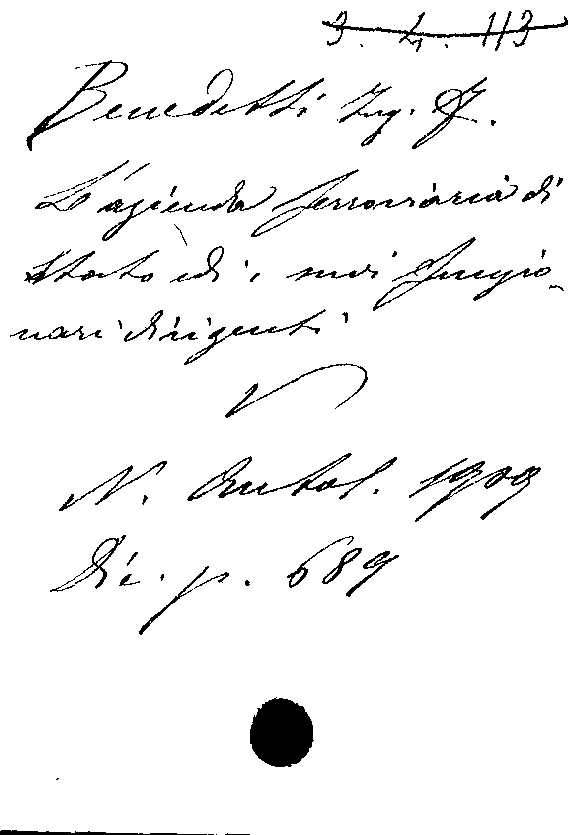 3. 4. 113
Benedetti Ing. F.
L'azienda ferroviaria di
Stato ed i suoi funzio-
nari dirigenti
N. Antol. 1909
Dic. p. 689